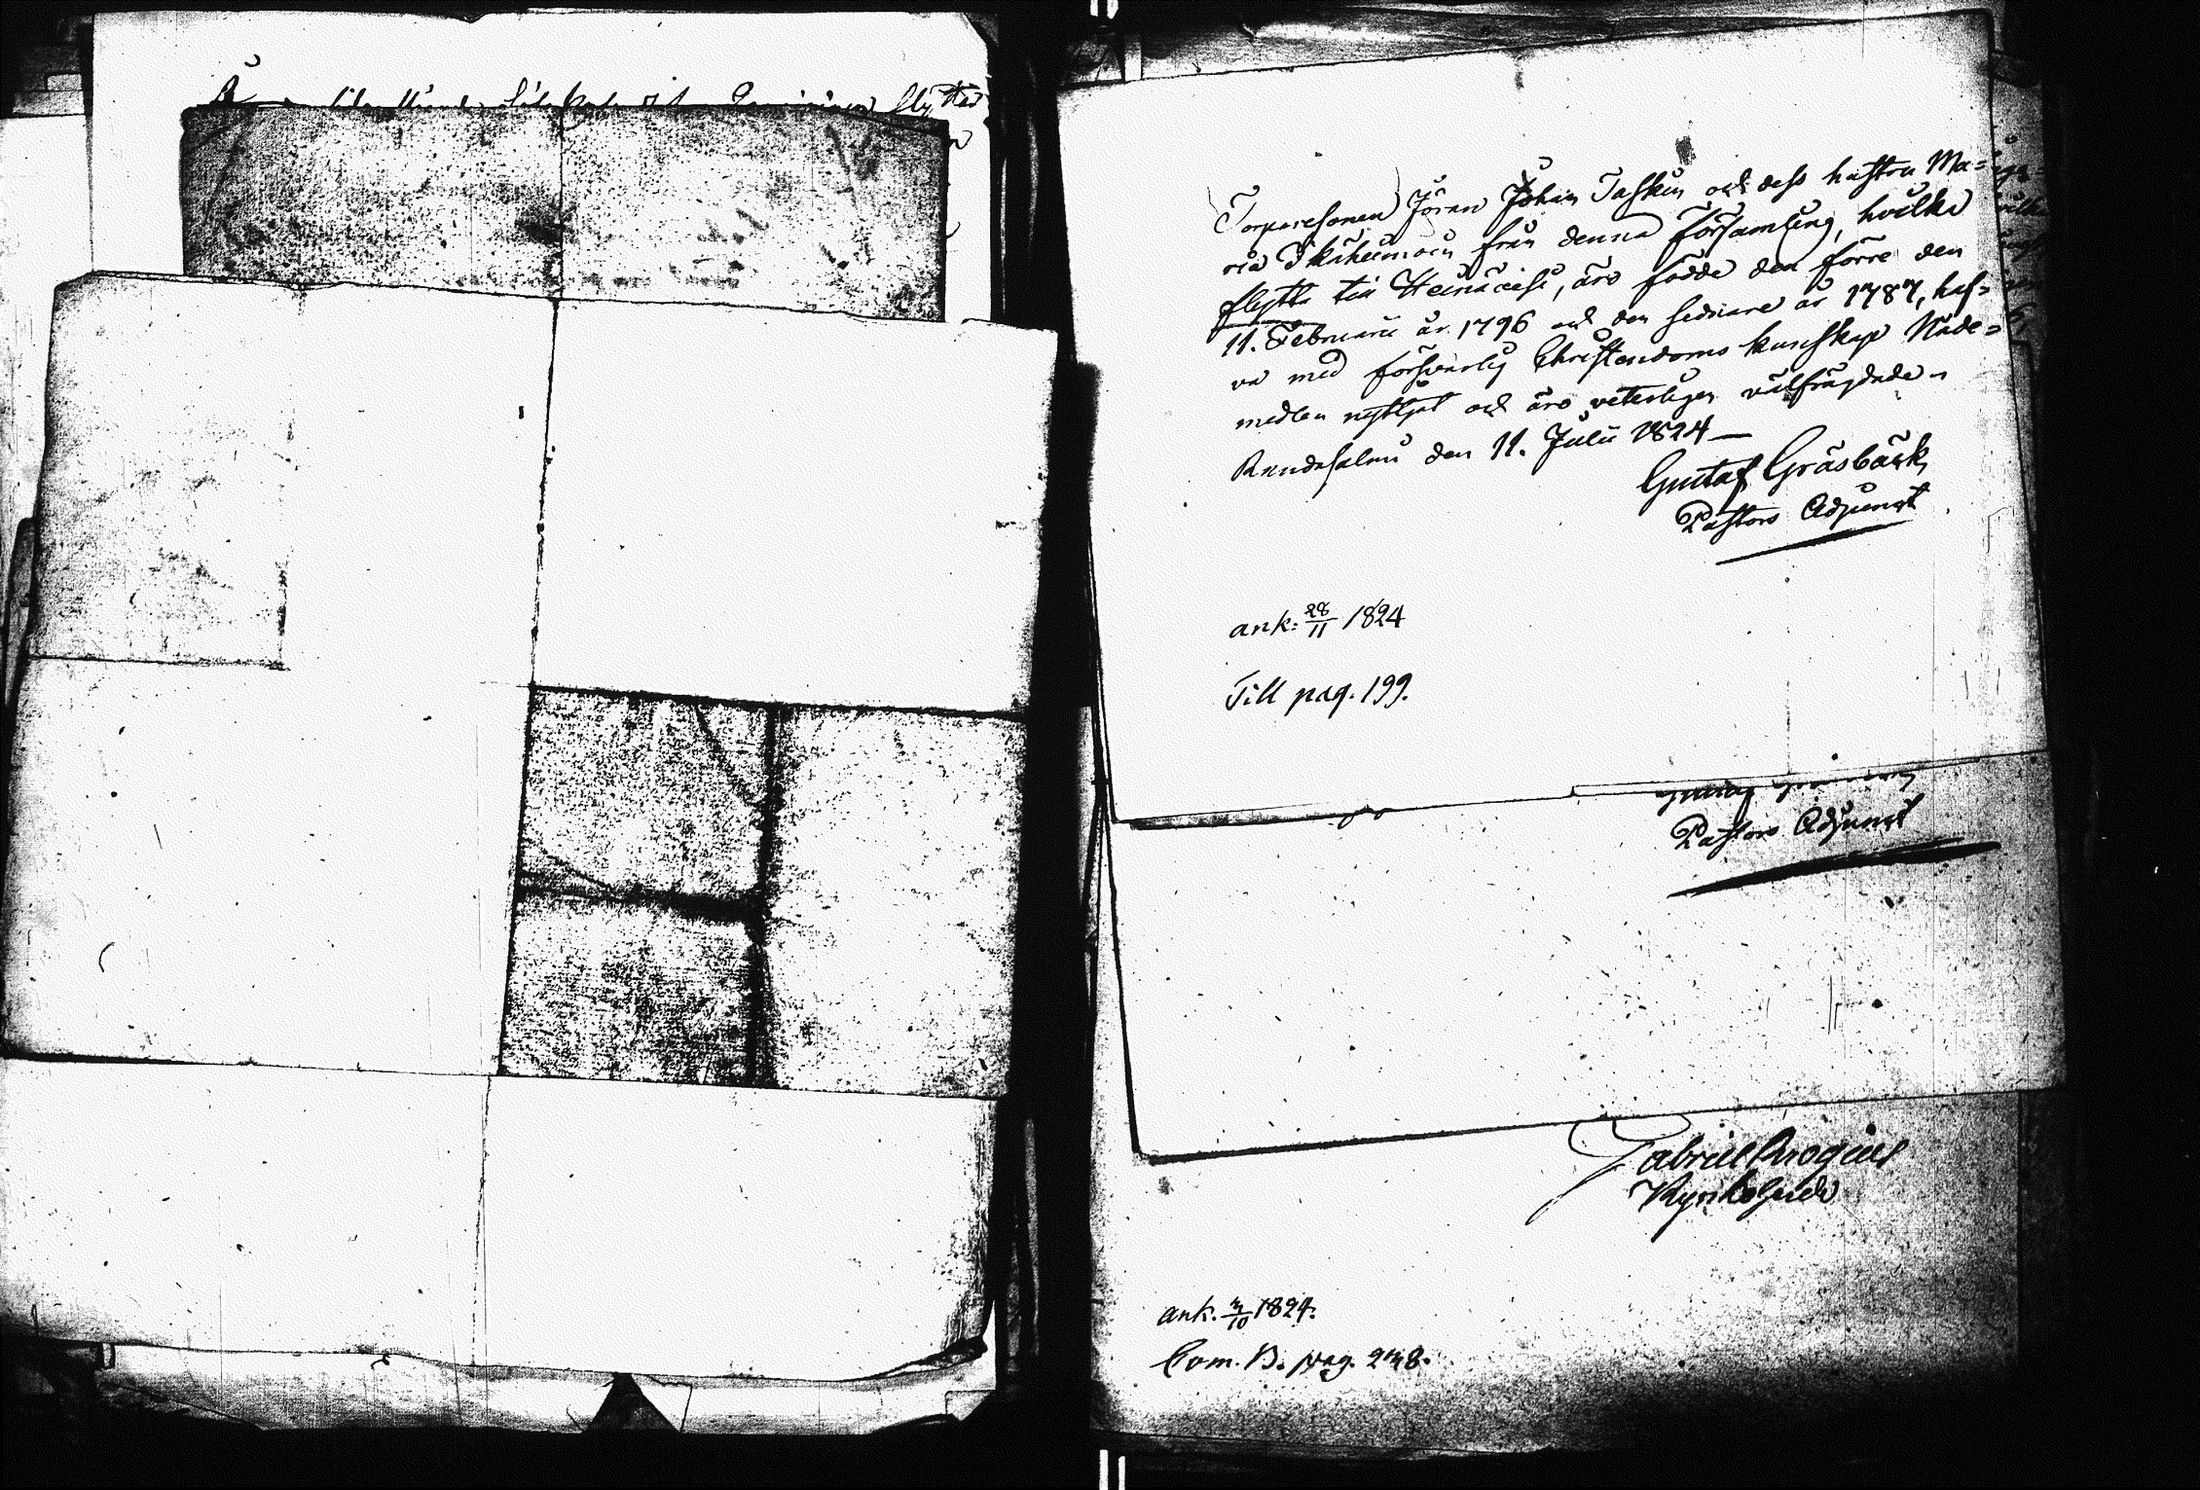 Torparesonen Jöran Johan Taskin och dess hustru Ma=
ria Ikäheimoin från denna Församling, hvilka
flytta till Heinävesi, äro födde den förre den
11. Februarii år 1796 och den sednare år 1787, haf=
va med försvarlig Christendoms kunskap Nåde=
medlen nyttjat och äro veterligen välfrägdade.
Randasalmi den 11. Julii 1824
Gustaf Gräsbäck
Pastors Adjunct
ank: 28/11 1824
Till pag. 199.
Pastors Adjunct
Gabriel
Kyrkoherde
ank. 3/10 1824.
Com. B. pag. 238.